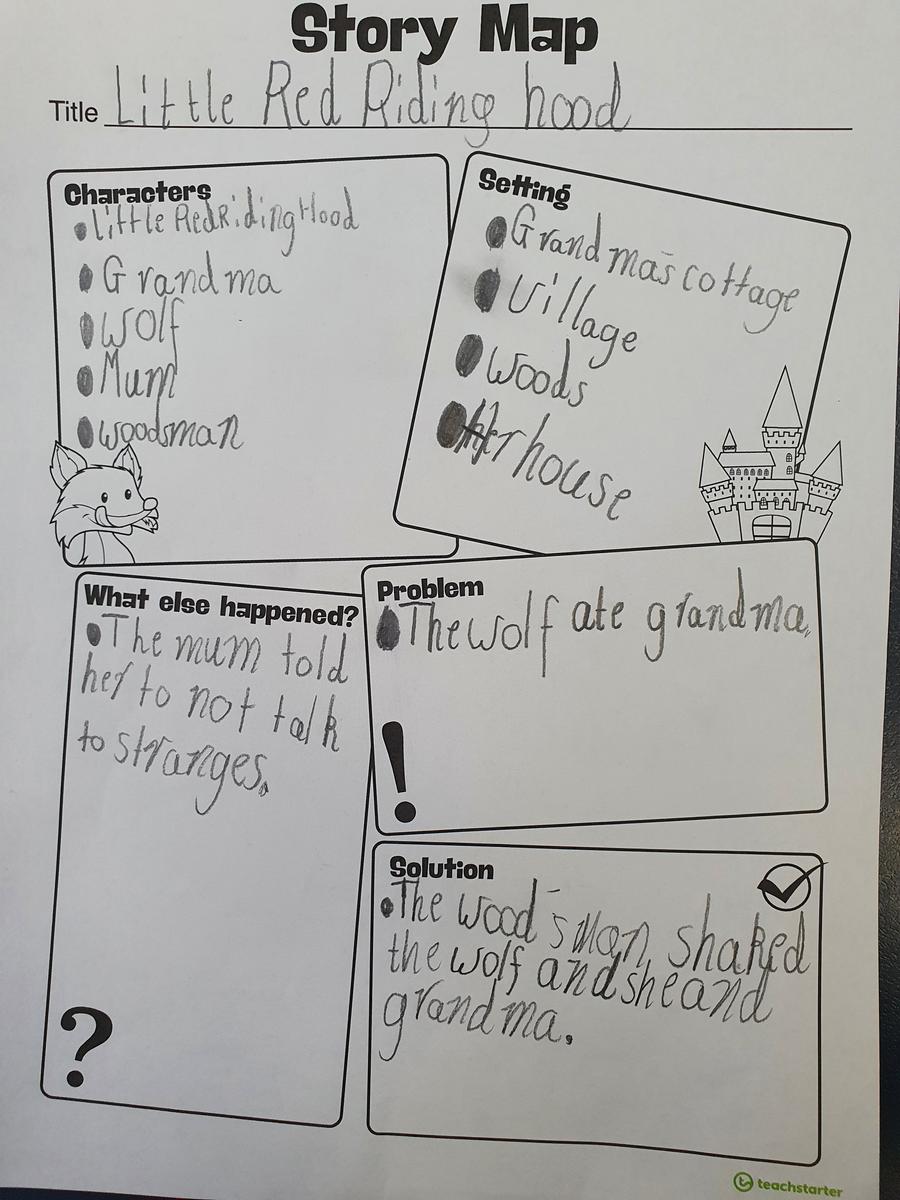 Story Map
Title Little Red Riding hood
Characters
Little Red Riding Hood
Grandma
Wolf
Mum
woodsman
Setting
Grandma's cottage
Village
Woods
house
What else happened?
The mum told
her to not talk
to stranges.
?
Problem
The wolf ate grandma.
!
Solution
The wood's Man shaked
the wolf and she and
grandma.
teachstarter